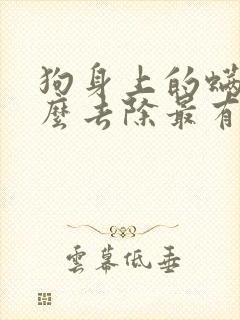 狗身上的螨
麼去除最有
雲幕低垂